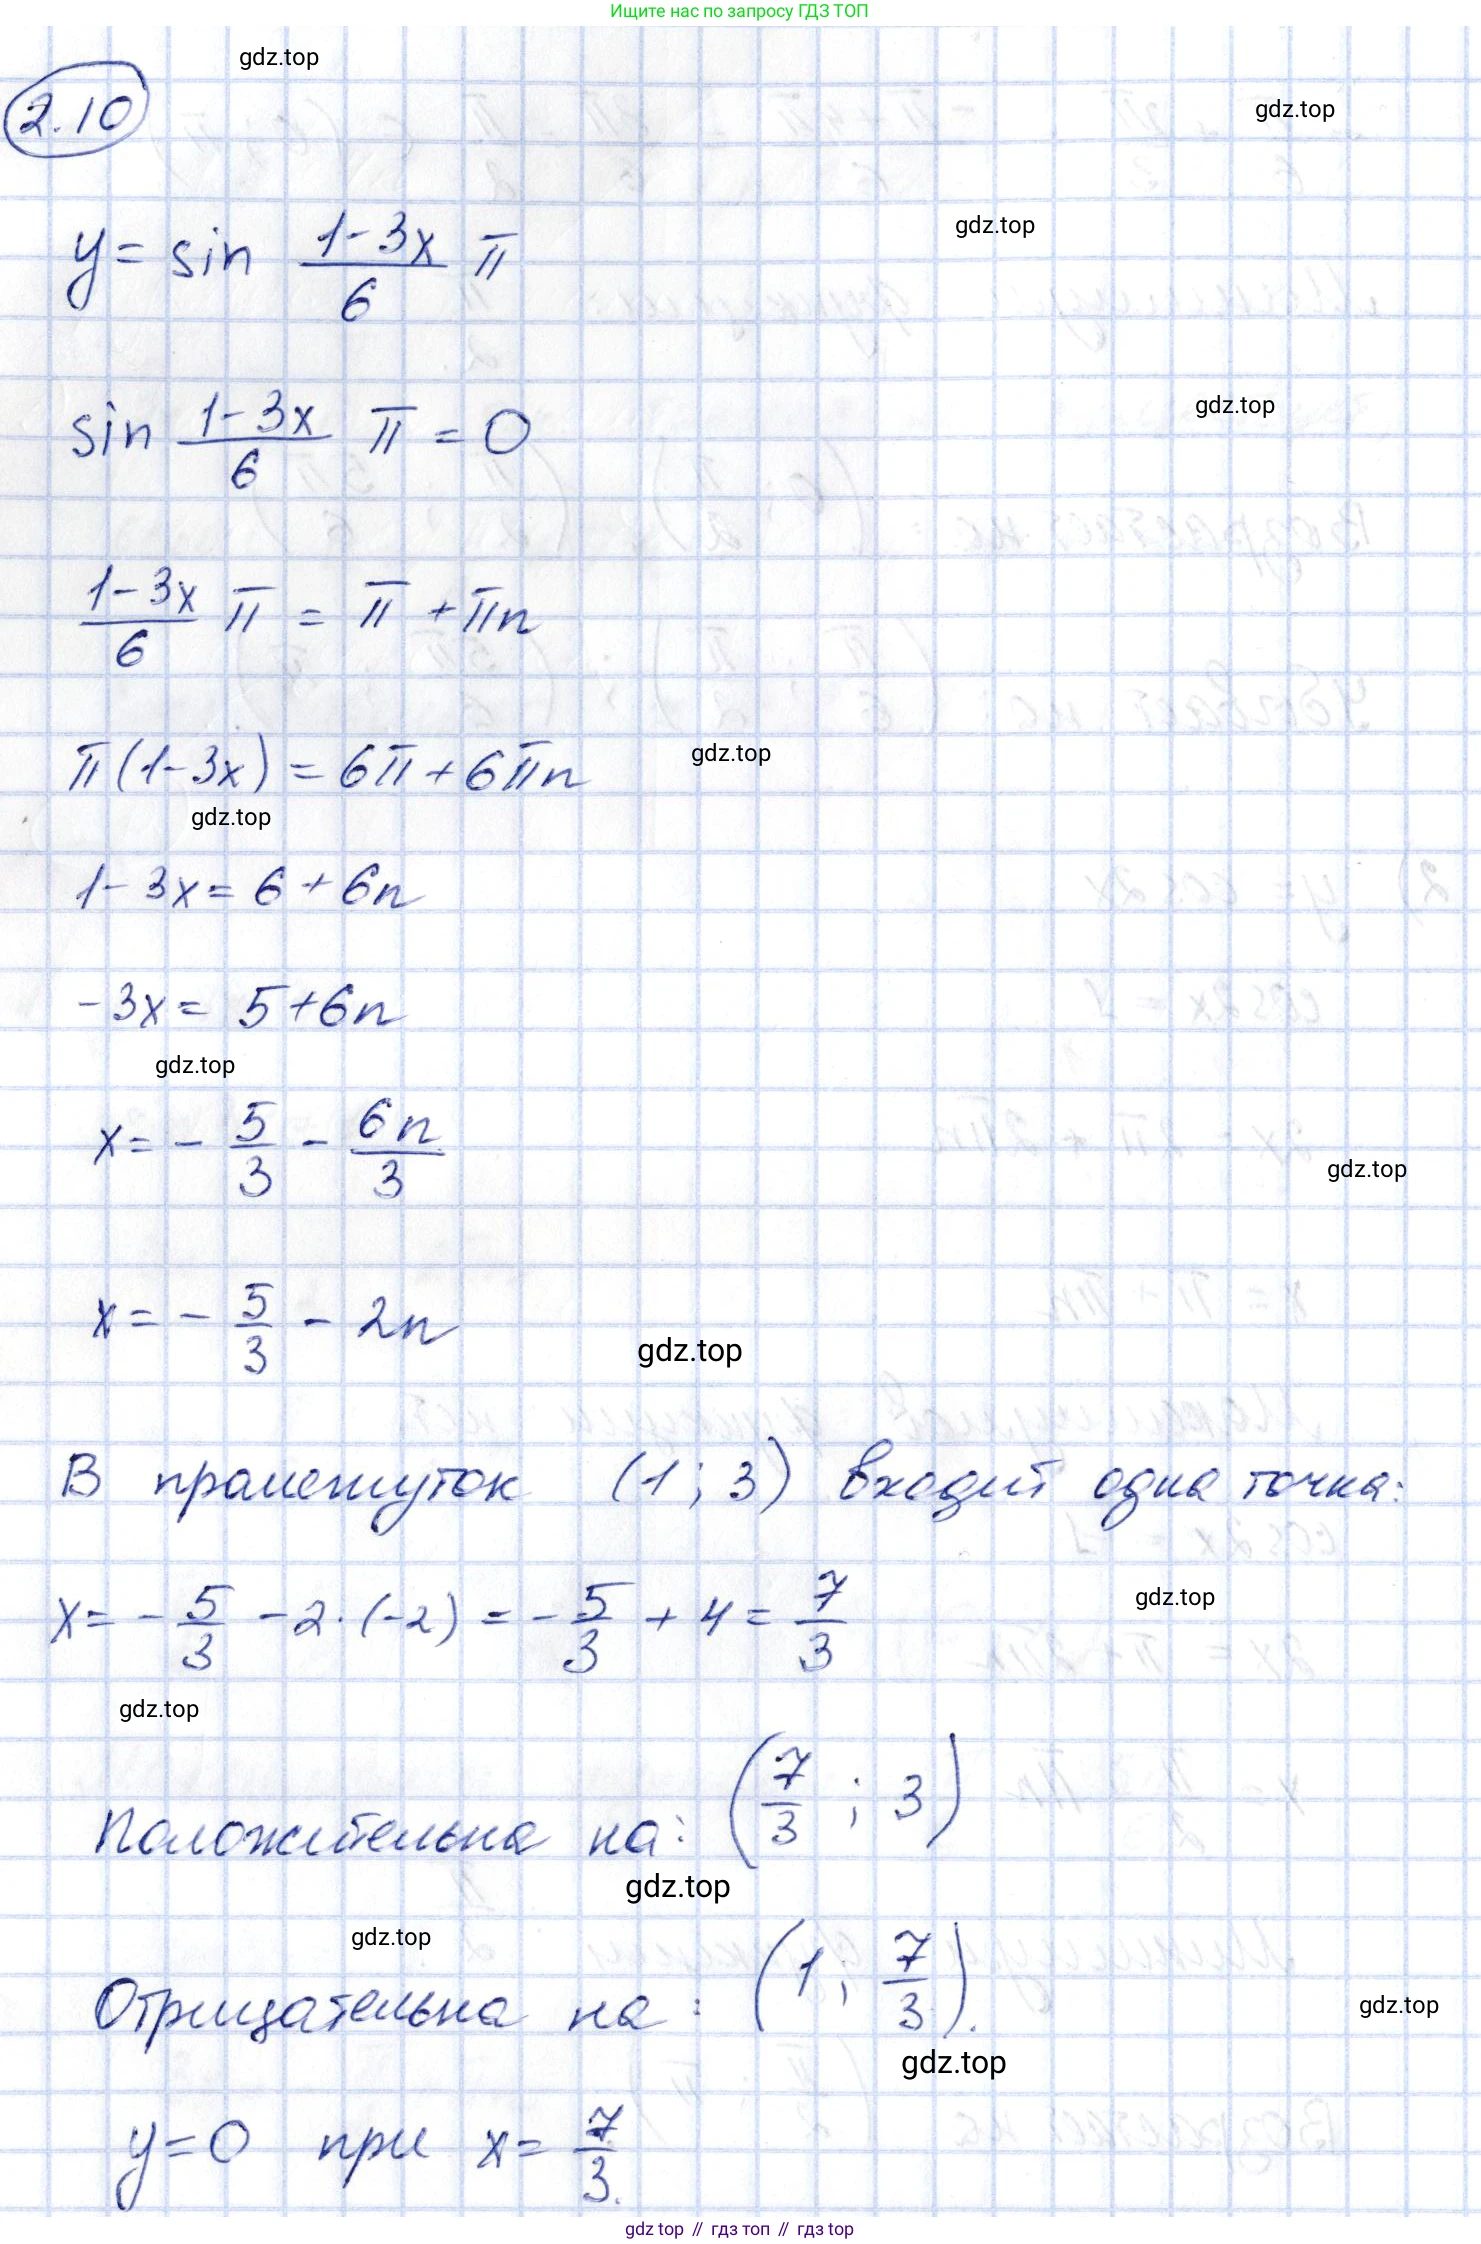 Ищите нас по запросу ГДЗ ТОП
gdz.top
2.10
gdz.top
y = sin (1-3x)/6 π
gdz.top
sin (1-3x)/6 π = 0
gdz.top
(1-3x)/6 π = π + πn
π(1-3x) = 6π + 6πn
gdz.top
gdz.top
1-3x = 6 + 6n
-3x = 5+6n
gdz.top
x = - 5/3 - 6n/3
gdz.top
x = - 5/3 - 2n
gdz.top
В промежуток (1; 3) входит одна точка:
x = - 5/3 - 2·(-2) = - 5/3 + 4 = 7/3
gdz.top
gdz.top
Положительна на: (7/3 ; 3)
gdz.top
gdz.top
Отрицательна на: (1; 7/3).
gdz.top
gdz.top
y=0 при x = 7/3.
gdz top // гдз топ // гдз top